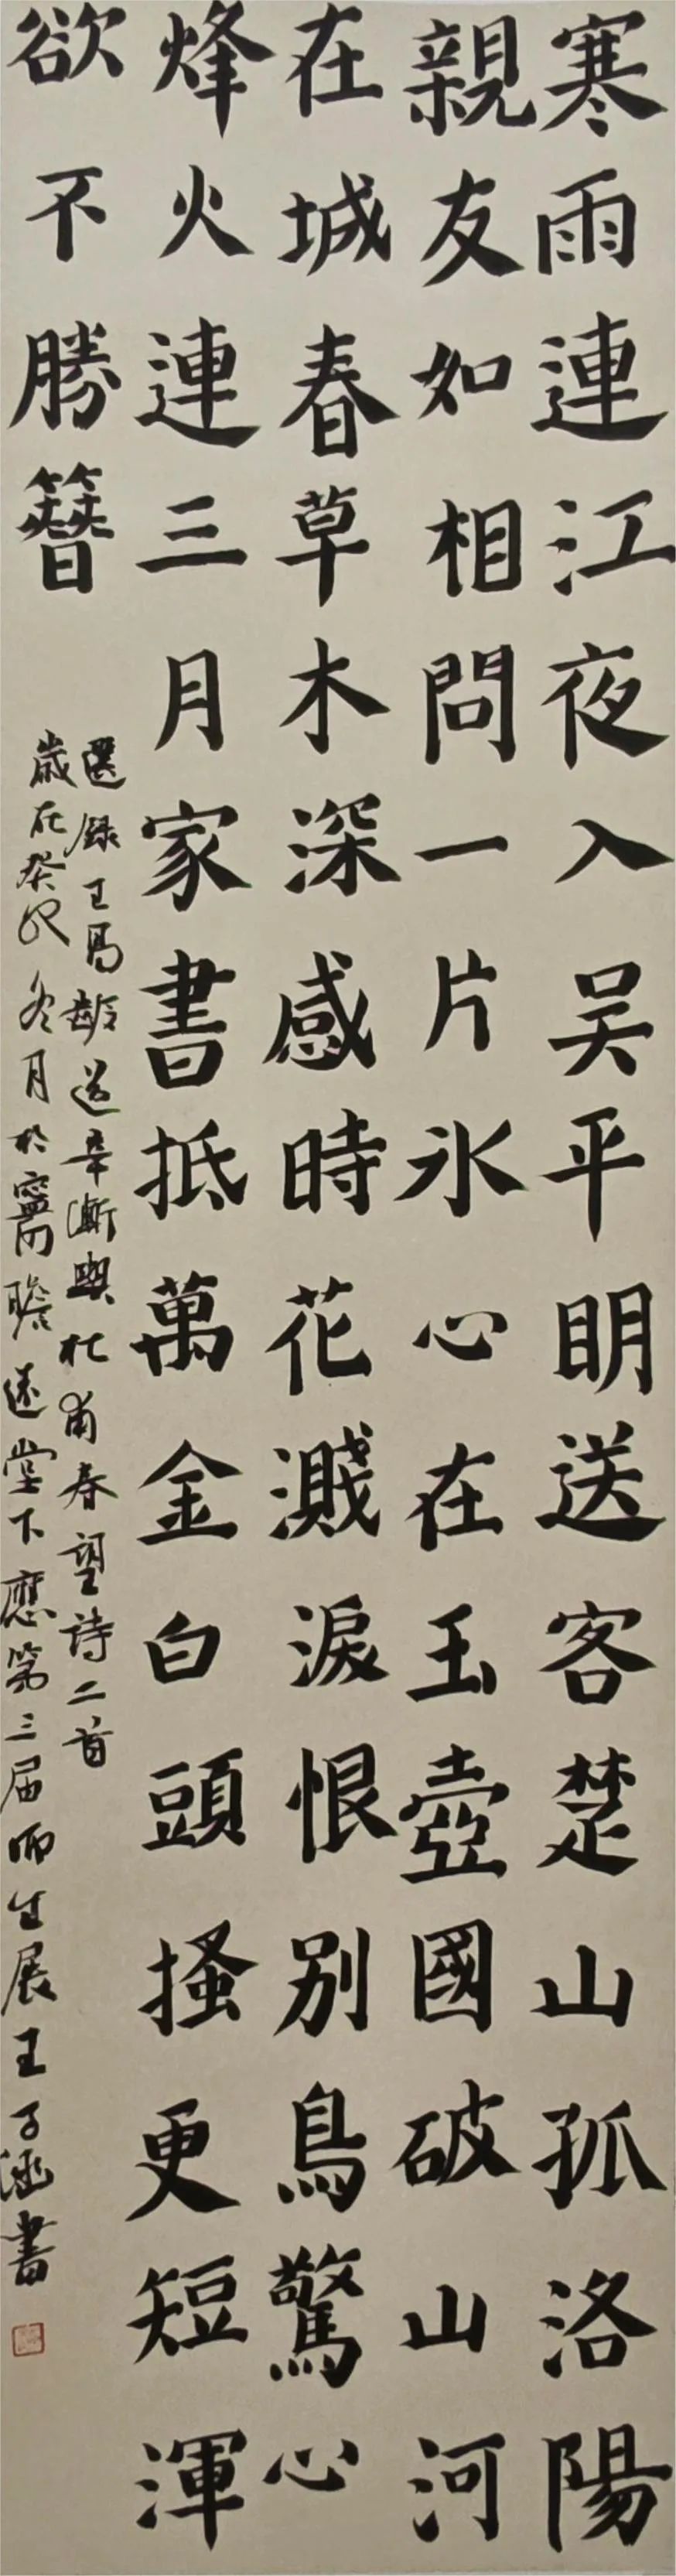 寒雨連江夜入吴平明送客楚山孤洛陽
親友如相問一片冰心在玉壺國破山河
在城春草木深感時花濺淚恨别鳥驚心
烽火連三月家書抵萬金白頭搔更短渾
欲不勝簪
選録王昌齡送辛漸與杜甫春望詩二首
歲在癸卯冬月於甯瞻遠堂下應第三届師生展王子涵書